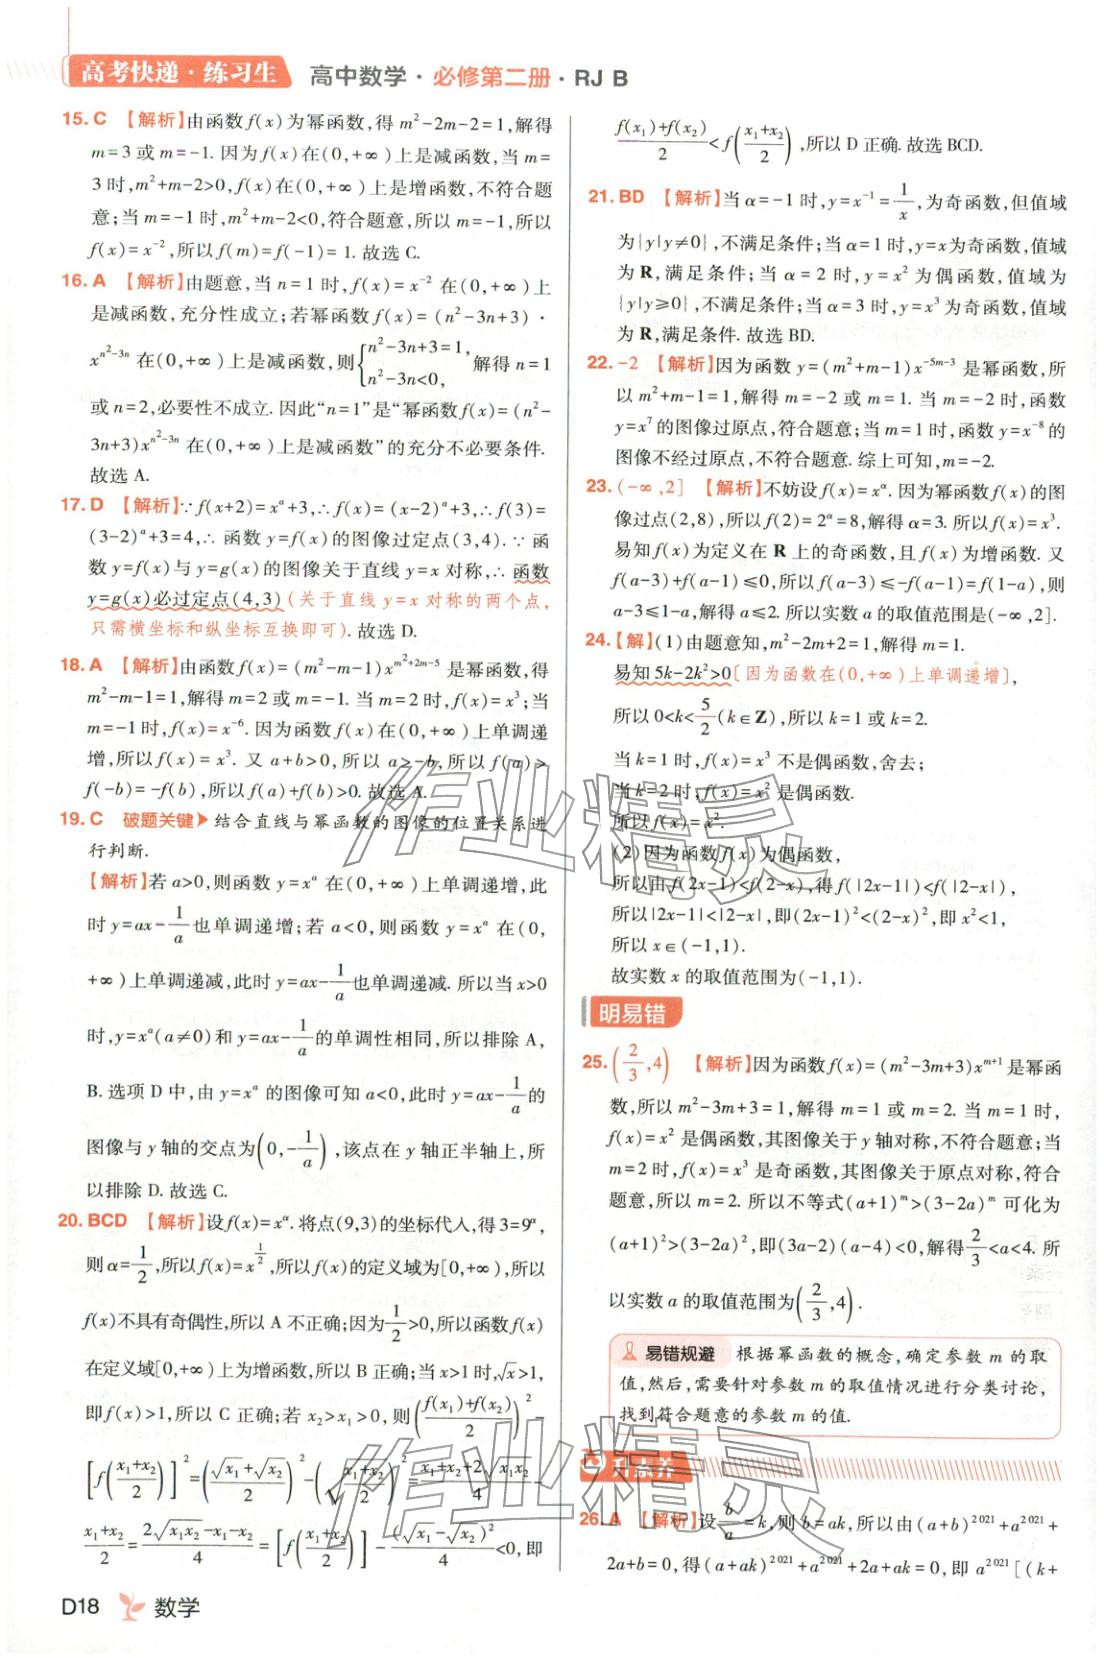 高考快递·练习生 高中数学·必修第二册·RJ B
15. C 【解析】由函数f(x)为幂函数,得 m²-2m-2=1,解得
m=3或m=-1. 因为f(x)在(0,+∞)上是减函数,当 m=
3时,m²+m-2>0,f(x)在(0,+∞)上是增函数,不符合题
意;当 m=-1时,m²+m-2<0,符合题意,所以 m=-1,所以
f(x)=x⁻²,所以f(m)=f(-1)=1. 故选 C.
16. A 【解析】由题意,当 n=1 时,f(x)=x⁻² 在(0,+∞)上
是减函数,充分性成立;若幂函数f(x)=(n²-3n+3)·
x^{n²-3n} 在(0,+∞)上是减函数,则{n²-3n+3=1, n²-3n<0, 解得 n=1
或 n=2,必要性不成立. 因此“n=1”是“幂函数f(x)=(n²-
3n+3)x^{n²-3n} 在(0,+∞)上是减函数”的充分不必要条件.
故选 A.
17. D 【解析】∵f(x+2)=xᵃ+3,∴f(x)=(x-2)ᵃ+3,∴f(3)=
(3-2)ᵃ+3=4,∴ 函数 y=f(x)的图像过定点(3,4). ∵ 函
数 y=f(x)与 y=g(x)的图像关于直线 y=x 对称,∴ 函数
y=g(x)必过定点(4,3)(关于直线 y=x 对称的两个点,
只需横坐标和纵坐标互换即可). 故选 D.
18. A 【解析】由函数f(x)=(m²-m-1)x^{m²+2m-5} 是幂函数,得
m²-m-1=1,解得 m=2 或 m=-1. 当 m=2 时,f(x)=x³;当
m=-1 时,f(x)=x⁻⁶. 因为函数 f(x)在(0,+∞)上单调递
增,所以f(x)=x³. 又 a+b>0,所以 a>-b,所以 f(a)>
f(-b)=-f(b),所以f(a)+f(b)>0. 故选 A.
19. C 破题关键▶结合直线与幂函数的图像的位置关系进
行判断.
【解析】若 a>0,则函数 y=xᵃ 在(0,+∞)上单调递增,此
时 y=ax-1/a 也单调递增;若 a<0,则函数 y=xᵃ 在(0,
+∞)上单调递减,此时 y=ax-1/a 也单调递减. 所以当 x>0
时,y=xᵃ(a≠0)和 y=ax-1/a 的单调性相同,所以排除 A,
B. 选项 D 中,由 y=xᵃ 的图像可知 a<0,此时 y=ax-1/a 的
图像与 y 轴的交点为(0,-1/a),该点在 y 轴正半轴上,所
以排除 D. 故选 C.
20. BCD 【解析】设f(x)=xᵅ. 将点(9,3)的坐标代入,得 3=9ᵅ,
则 α=1/2,所以f(x)=x^{1/2},所以f(x)的定义域为[0,+∞),所以
f(x)不具有奇偶性,所以 A 不正确;因为1/2>0,所以函数f(x)
在定义域[0,+∞)上为增函数,所以 B 正确;当 x>1 时,√x>1,
即f(x)>1,所以 C 正确;若 x₂>x₁>0,则((f(x₁)+f(x₂))/2)²-
[f((x₁+x₂)/2)]²=((√x₁+√x₂)/2)²-(√((x₁+x₂)/2))²=(x₁+x₂+2√(x₁x₂))/4-
(x₁+x₂)/2=(2√(x₁x₂)-x₁-x₂)/4=[f((x₁+x₂)/2)]-(√x₁-√x₂)²/4<0,即
D18 数学
(f(x₁)+f(x₂))/2<f((x₁+x₂)/2),所以 D 正确. 故选 BCD.
21. BD 【解析】当 α=-1 时,y=x⁻¹=1/x,为奇函数,但值域
为{y|y≠0},不满足条件;当 α=1 时,y=x为奇函数,值域
为 R,满足条件;当 α=2 时,y=x² 为偶函数,值域为
{y|y≥0},不满足条件;当 α=3 时,y=x³为奇函数,值域
为 R,满足条件. 故选 BD.
22. -2 【解析】因为函数 y=(m²+m-1)x^{-5m-3} 是幂函数,所
以 m²+m-1=1,解得 m=-2 或 m=1. 当 m=-2 时,函数
y=x⁷ 的图像过原点,符合题意;当 m=1 时,函数 y=x⁻⁸ 的
图像不经过原点,不符合题意. 综上可知,m=-2.
23. (-∞,2] 【解析】不妨设f(x)=xᵅ. 因为幂函数f(x)的图
像过点(2,8),所以f(2)=2ᵅ=8,解得 α=3. 所以f(x)=x³.
易知f(x)为定义在 R 上的奇函数,且f(x)为增函数. 又
f(a-3)+f(a-1)≤0,所以f(a-3)≤-f(a-1)=f(1-a),则
a-3≤1-a,解得 a≤2. 所以实数 a 的取值范围是(-∞,2].
24. 【解】(1)由题意知,m²-2m+2=1,解得 m=1.
易知 5k-2k²>0[因为函数在(0,+∞)上单调递增],
所以 0<k<5/2(k∈Z),所以 k=1 或 k=2.
当 k=1 时,f(x)=x³ 不是偶函数,舍去;
当 k=2 时,f(x)=x² 是偶函数.
所以f(x)=x².
(2)因为函数f(x)为偶函数,
所以由f(2x-1)<f(2-x),得f(|2x-1|)<f(|2-x|),
所以|2x-1|<|2-x|,即(2x-1)²<(2-x)²,即 x²<1,
所以 x∈(-1,1).
故实数 x 的取值范围为(-1,1).
明易错
25. (2/3,4) 【解析】因为函数f(x)=(m²-3m+3)x^{m+1}是幂函
数,所以 m²-3m+3=1,解得 m=1 或 m=2. 当 m=1 时,
f(x)=x² 是偶函数,其图像关于 y 轴对称,不符合题意;当
m=2 时,f(x)=x³ 是奇函数,其图像关于原点对称,符合
题意,所以 m=2. 所以不等式(a+1)ᵐ>(3-2a)ᵐ 可化为
(a+1)²>(3-2a)²,即(3a-2)(a-4)<0,解得2/3<a<4. 所
以实数 a 的取值范围为(2/3,4).
易错规避 根据幂函数的概念,确定参数 m 的取
值,然后,需要针对参数 m 的取值情况进行分类讨论,
找到符合题意的参数 m 的值.
素养
26. A 【解析】设b/a=k,则 b=ak,所以由(a+b)²⁰²¹+a²⁰²¹+
2a+b=0,得(a+ak)²⁰²¹+a²⁰²¹+2a+ak=0,即 a²⁰²¹[(k+
作业精灵
作业精灵